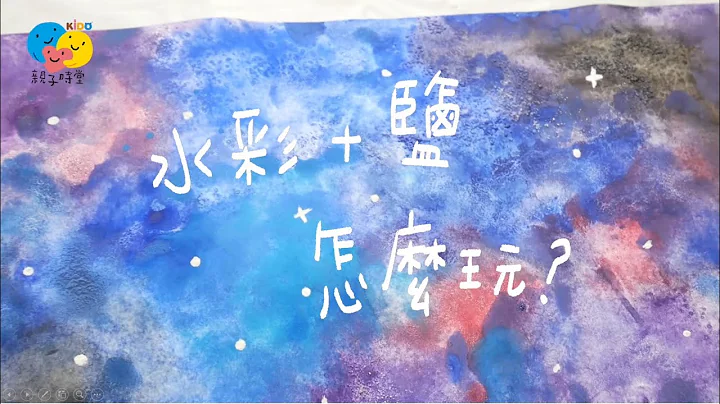 KIDO
親子時堂
水彩+鹽
怎麼玩?